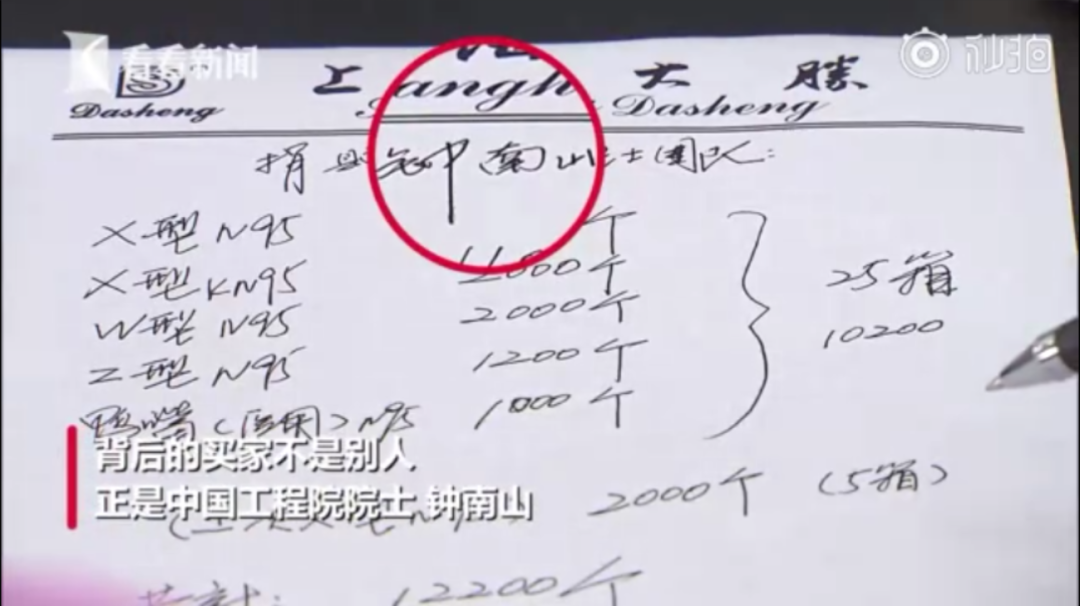 看看新闻 秒拍
上 大 勝
Dasheng angh Dasheng
捐 钟南山院士团队:
X型 N95 个
X型 KN95 个
W型 N95 2000个
Z型 N95 1200个
鸭嘴(医用)N95 1000个
25箱
10200
背后的买家不是别人
正是中国工程院院士 钟南山
2000个 (5箱)
共计: 12200个